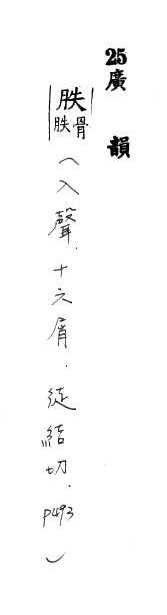 25廣韻
胅
胅骨
(入聲.十六屑.徒結切.P493)